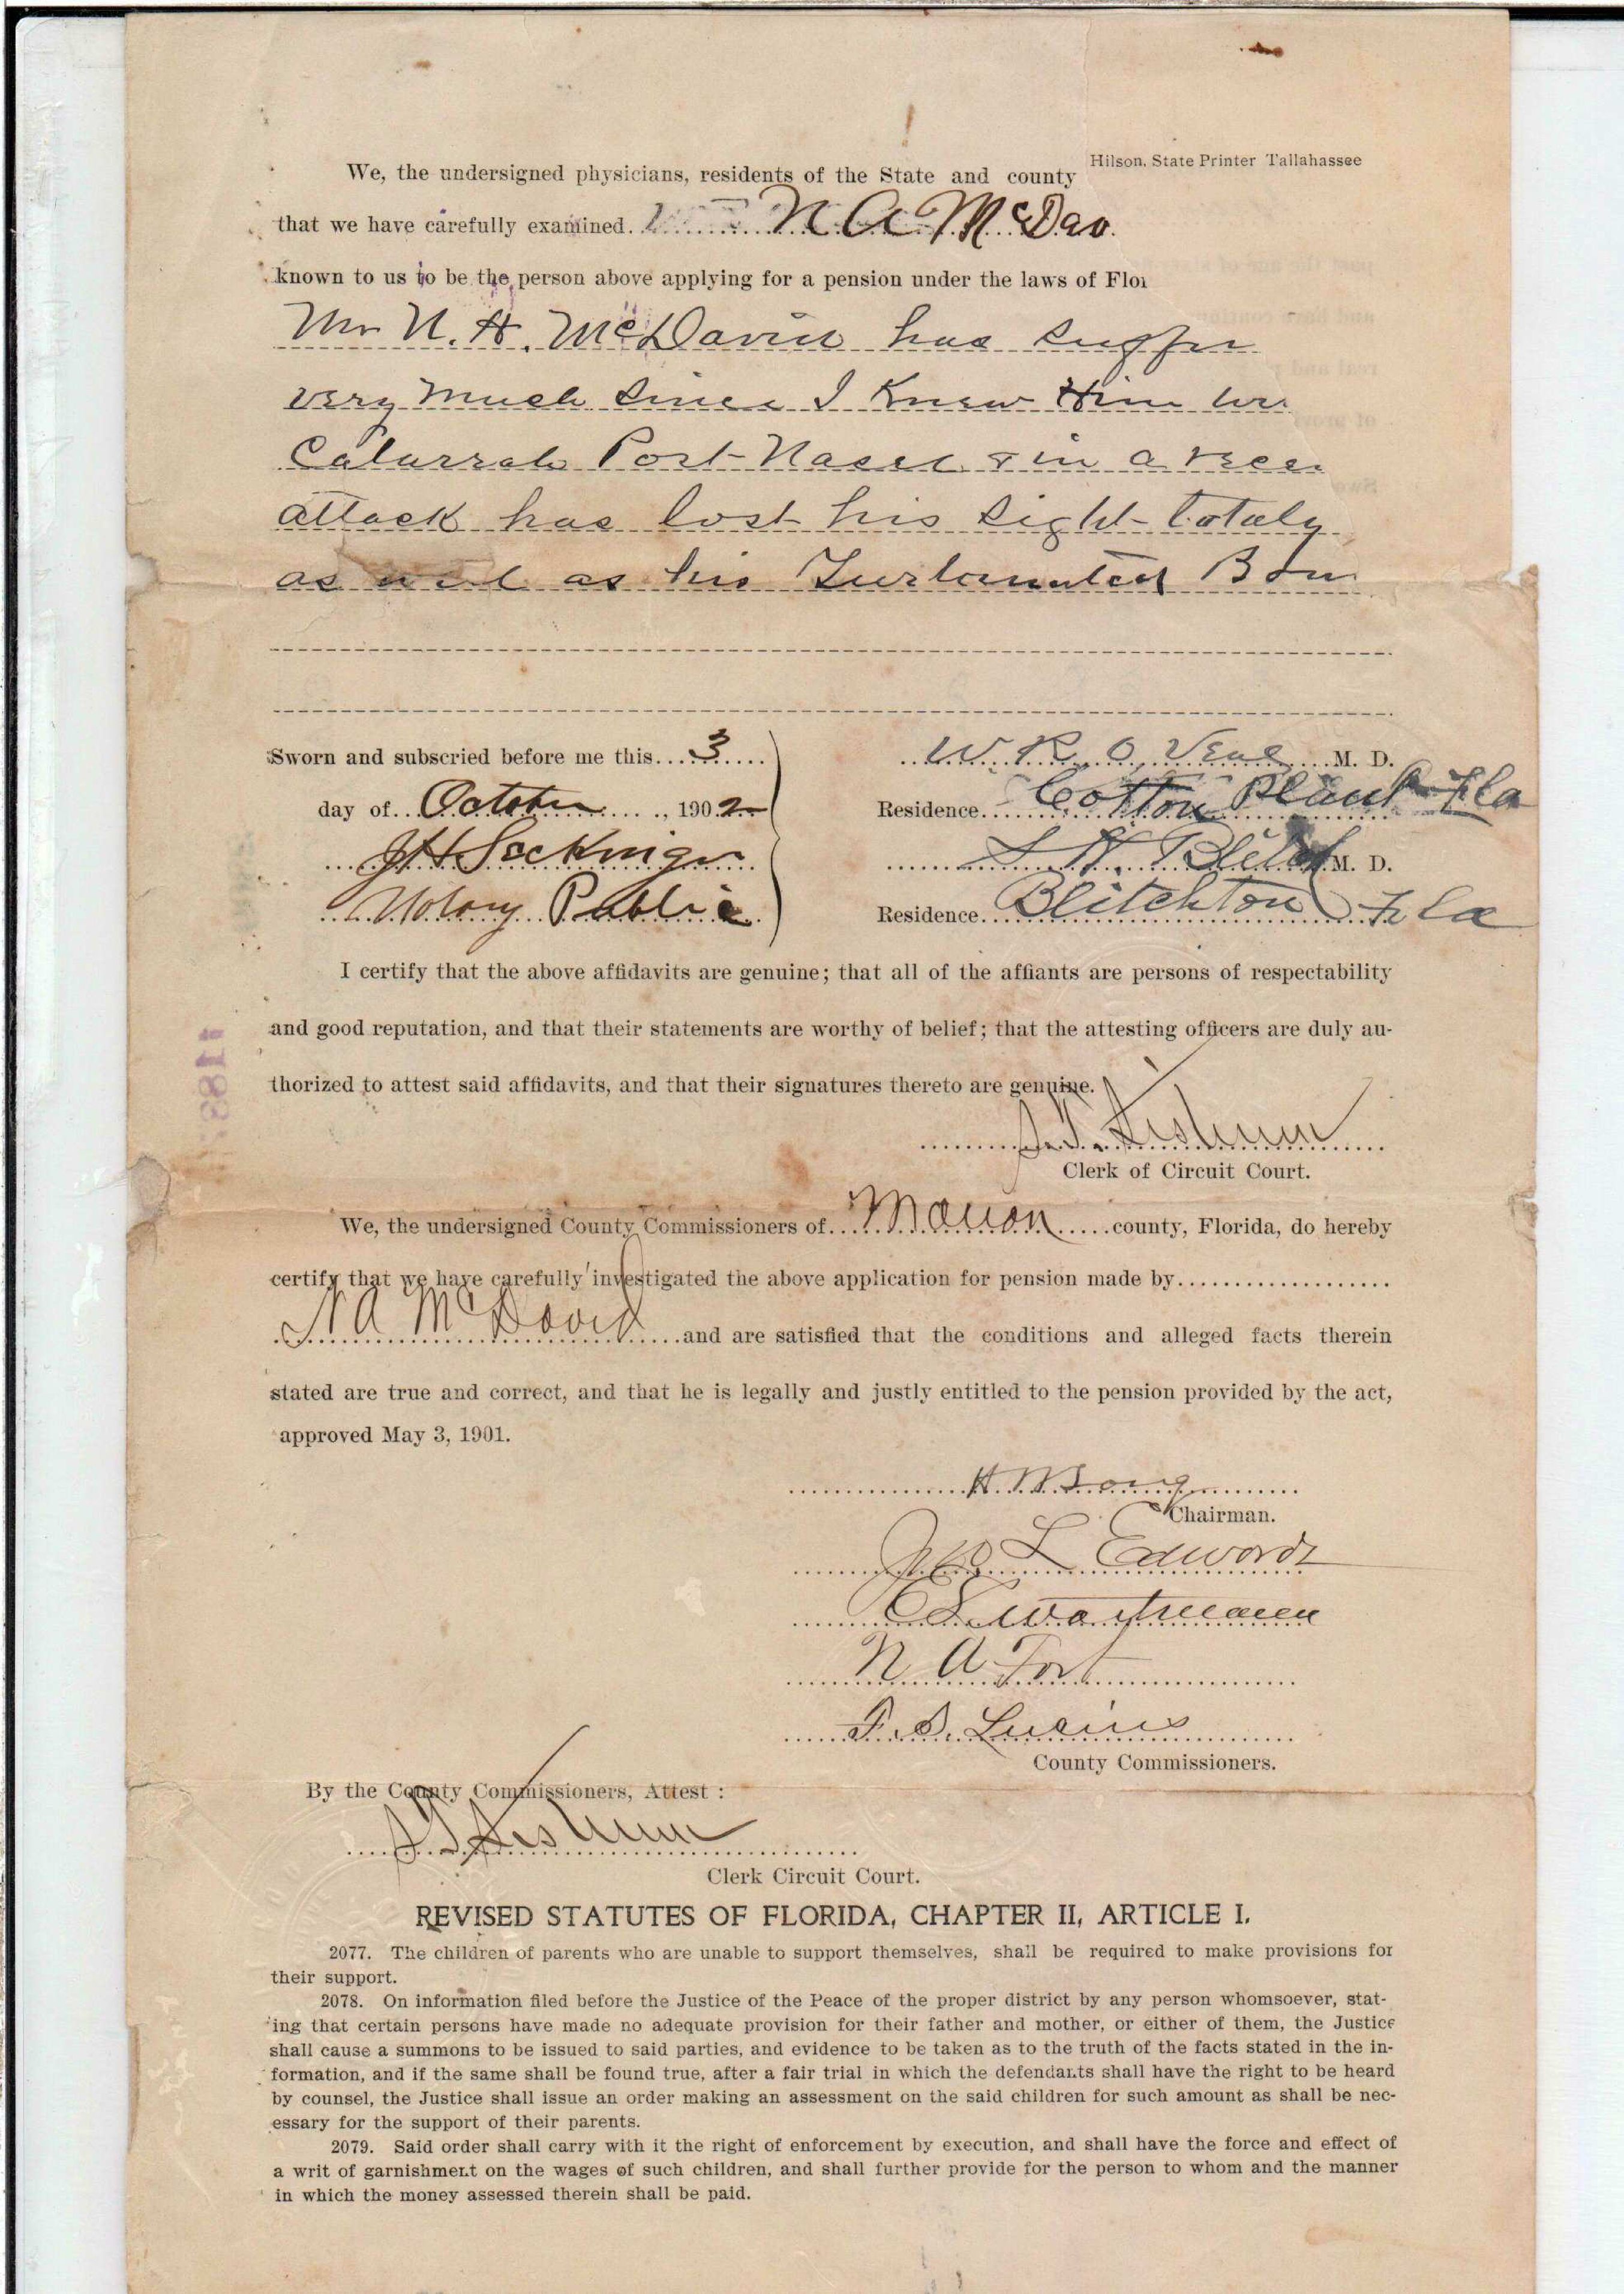 Hilson, State Printer Tallahassee
We, the undersigned physicians, residents of the State and county
that we have carefully examined. N A McDav
known to us to be the person above applying for a pension under the laws of Flor
Mr N. A. McDavid has suffer
very much since I Knew Him
Catarrah Post-Nasel & in a recen
attack has lost his sight totaly
as well as his
Sworn and subscried before me this 3
W R O Veal M. D.
day of October, 1902
Residence Cotton Plant Fla
J H Seckinger
S H Blitch M. D.
Notary Public
Residence Blitchton Fla
I certify that the above affidavits are genuine; that all of the affiants are persons of respectability
and good reputation, and that their statements are worthy of belief; that the attesting officers are duly au-
thorized to attest said affidavits, and that their signatures thereto are genuine.
S. T. Sistrunk
Clerk of Circuit Court.
We, the undersigned County Commissioners of Marion county, Florida, do hereby
certify that we have carefully investigated the above application for pension made by
N A McDavid and are satisfied that the conditions and alleged facts therein
stated are true and correct, and that he is legally and justly entitled to the pension provided by the act,
approved May 3, 1901.
Chairman.
Jno L Edwards
N A Fort
County Commissioners.
By the County Commissioners, Attest:
S T Sistrunk
Clerk Circuit Court.
REVISED STATUTES OF FLORIDA, CHAPTER II, ARTICLE I.
2077. The children of parents who are unable to support themselves, shall be required to make provisions for
their support.
2078. On information filed before the Justice of the Peace of the proper district by any person whomsoever, stat-
ing that certain persons have made no adequate provision for their father and mother, or either of them, the Justice
shall cause a summons to be issued to said parties, and evidence to be taken as to the truth of the facts stated in the in-
formation, and if the same shall be found true, after a fair trial in which the defendants shall have the right to be heard
by counsel, the Justice shall issue an order making an assessment on the said children for such amount as shall be nec-
essary for the support of their parents.
2079. Said order shall carry with it the right of enforcement by execution, and shall have the force and effect of
a writ of garnishment on the wages of such children, and shall further provide for the person to whom and the manner
in which the money assessed therein shall be paid.